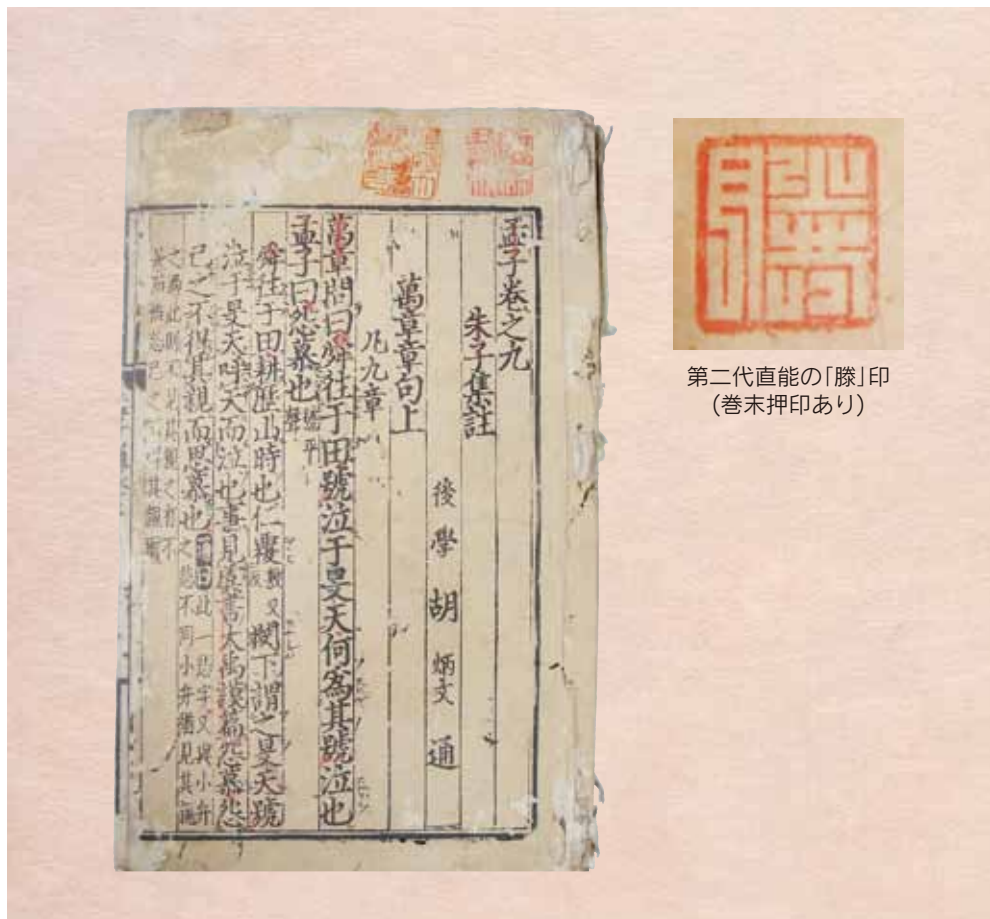 孟子卷之九
朱子集註
後學胡炳文通
萬章章句上
凡九章
萬章問曰舜往于田號泣于旻天何爲其號泣也
孟子曰怨慕也號平聲
舜往于田耕歷山時也仁覆敷又反閔下謂之旻天號
泣于旻天呼天而泣也事見虞書大禹謨篇怨慕怨
己之不得其親而思慕也通曰此一怨字又與小弁
之怨不同小弁猶見其親
第二代直能の「滕」印
(巻末押印あり)